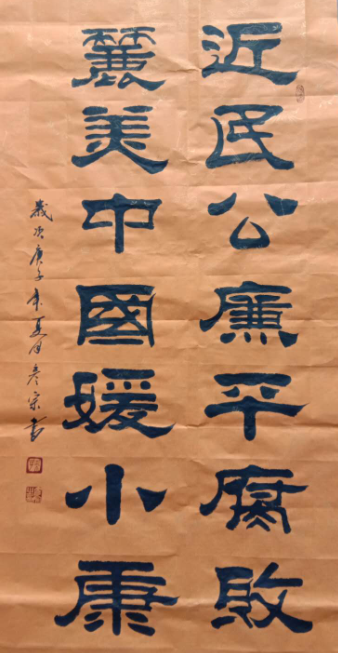 近民公廉平腐敗
麗美中國媛小康
歲次庚子年夏月彦宗书